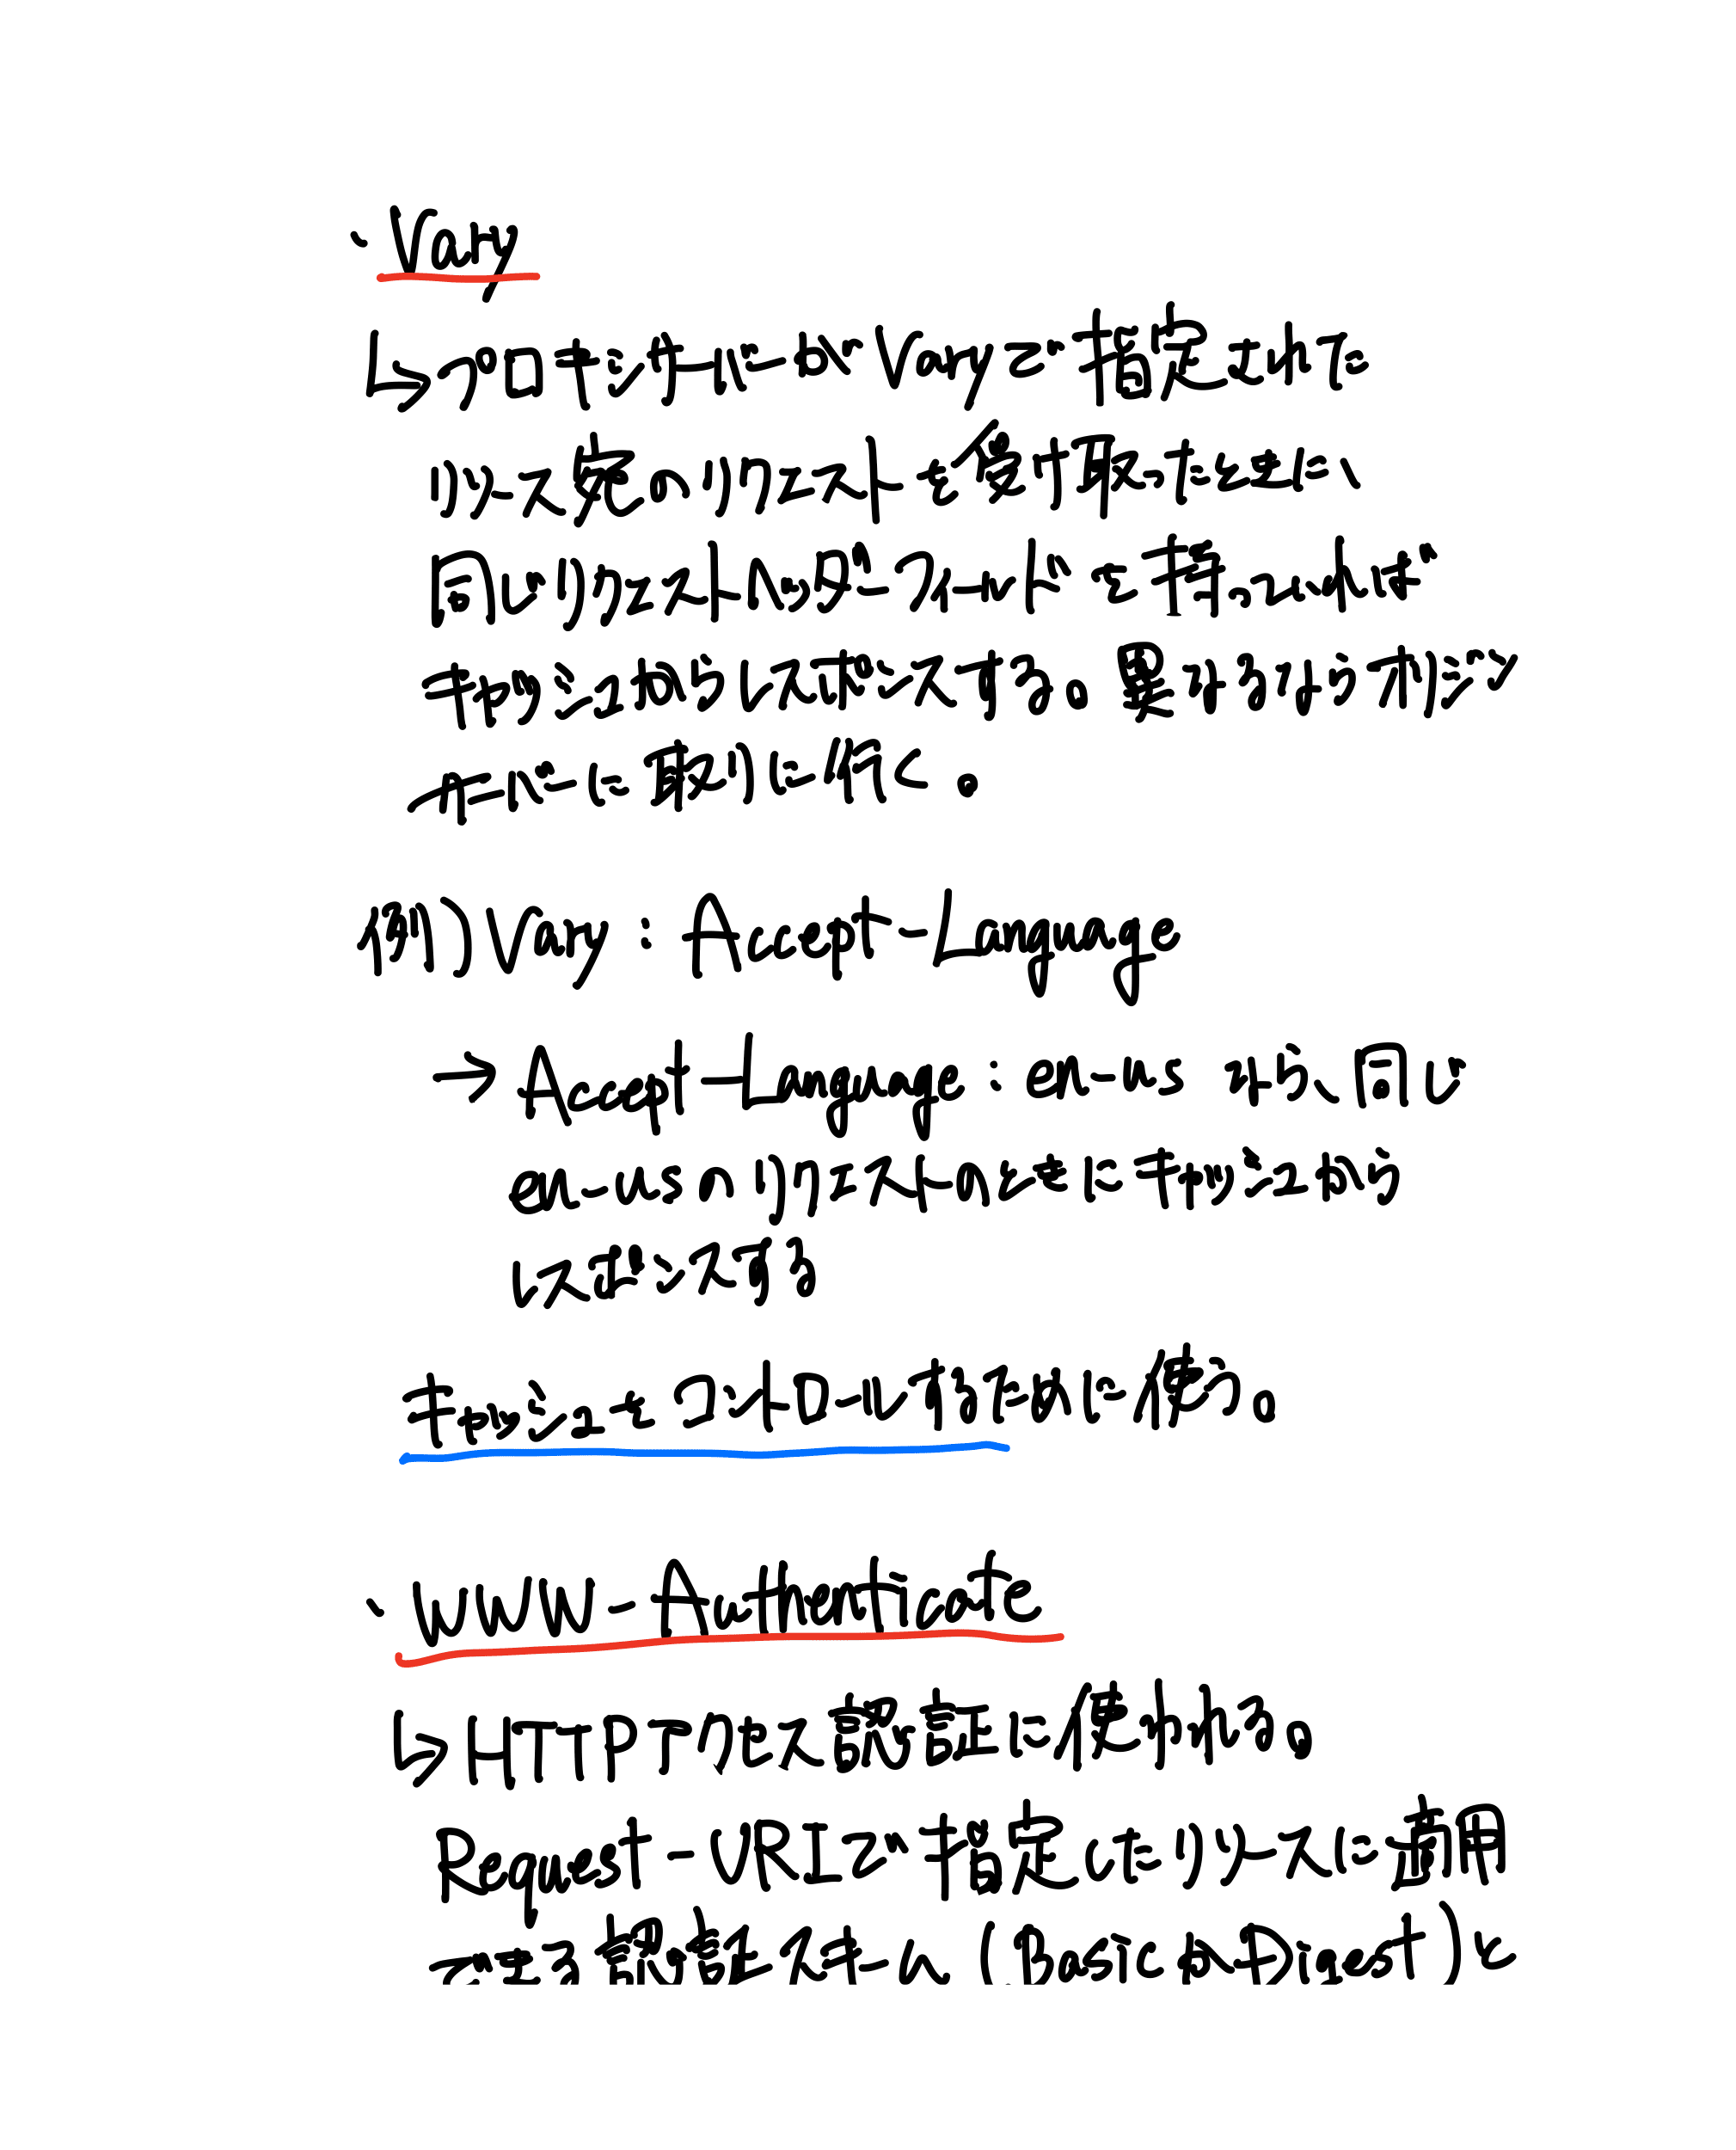 ・Vary
↳プロキシサーバーがVaryで指定された
リソース宛のリクエストを受け取ったときに、
同じリクエストヘッダーフィールドを持っていれば
キャッシュからレスポンスする。異なるならオリジン
サーバーに取りに行く。
例)Vary:Accept-Language
→Accept-Language:en-us なら、同じ
en-usのリクエストのときにキャッシュから
レスポンスする
キャッシュをコントロールするために使う。
・WWW-Authenticate
↳HTTPアクセス認証に使われる。
Request-URIで指定したリソースに適用
できる認証スキーム(BasicかDigest)と